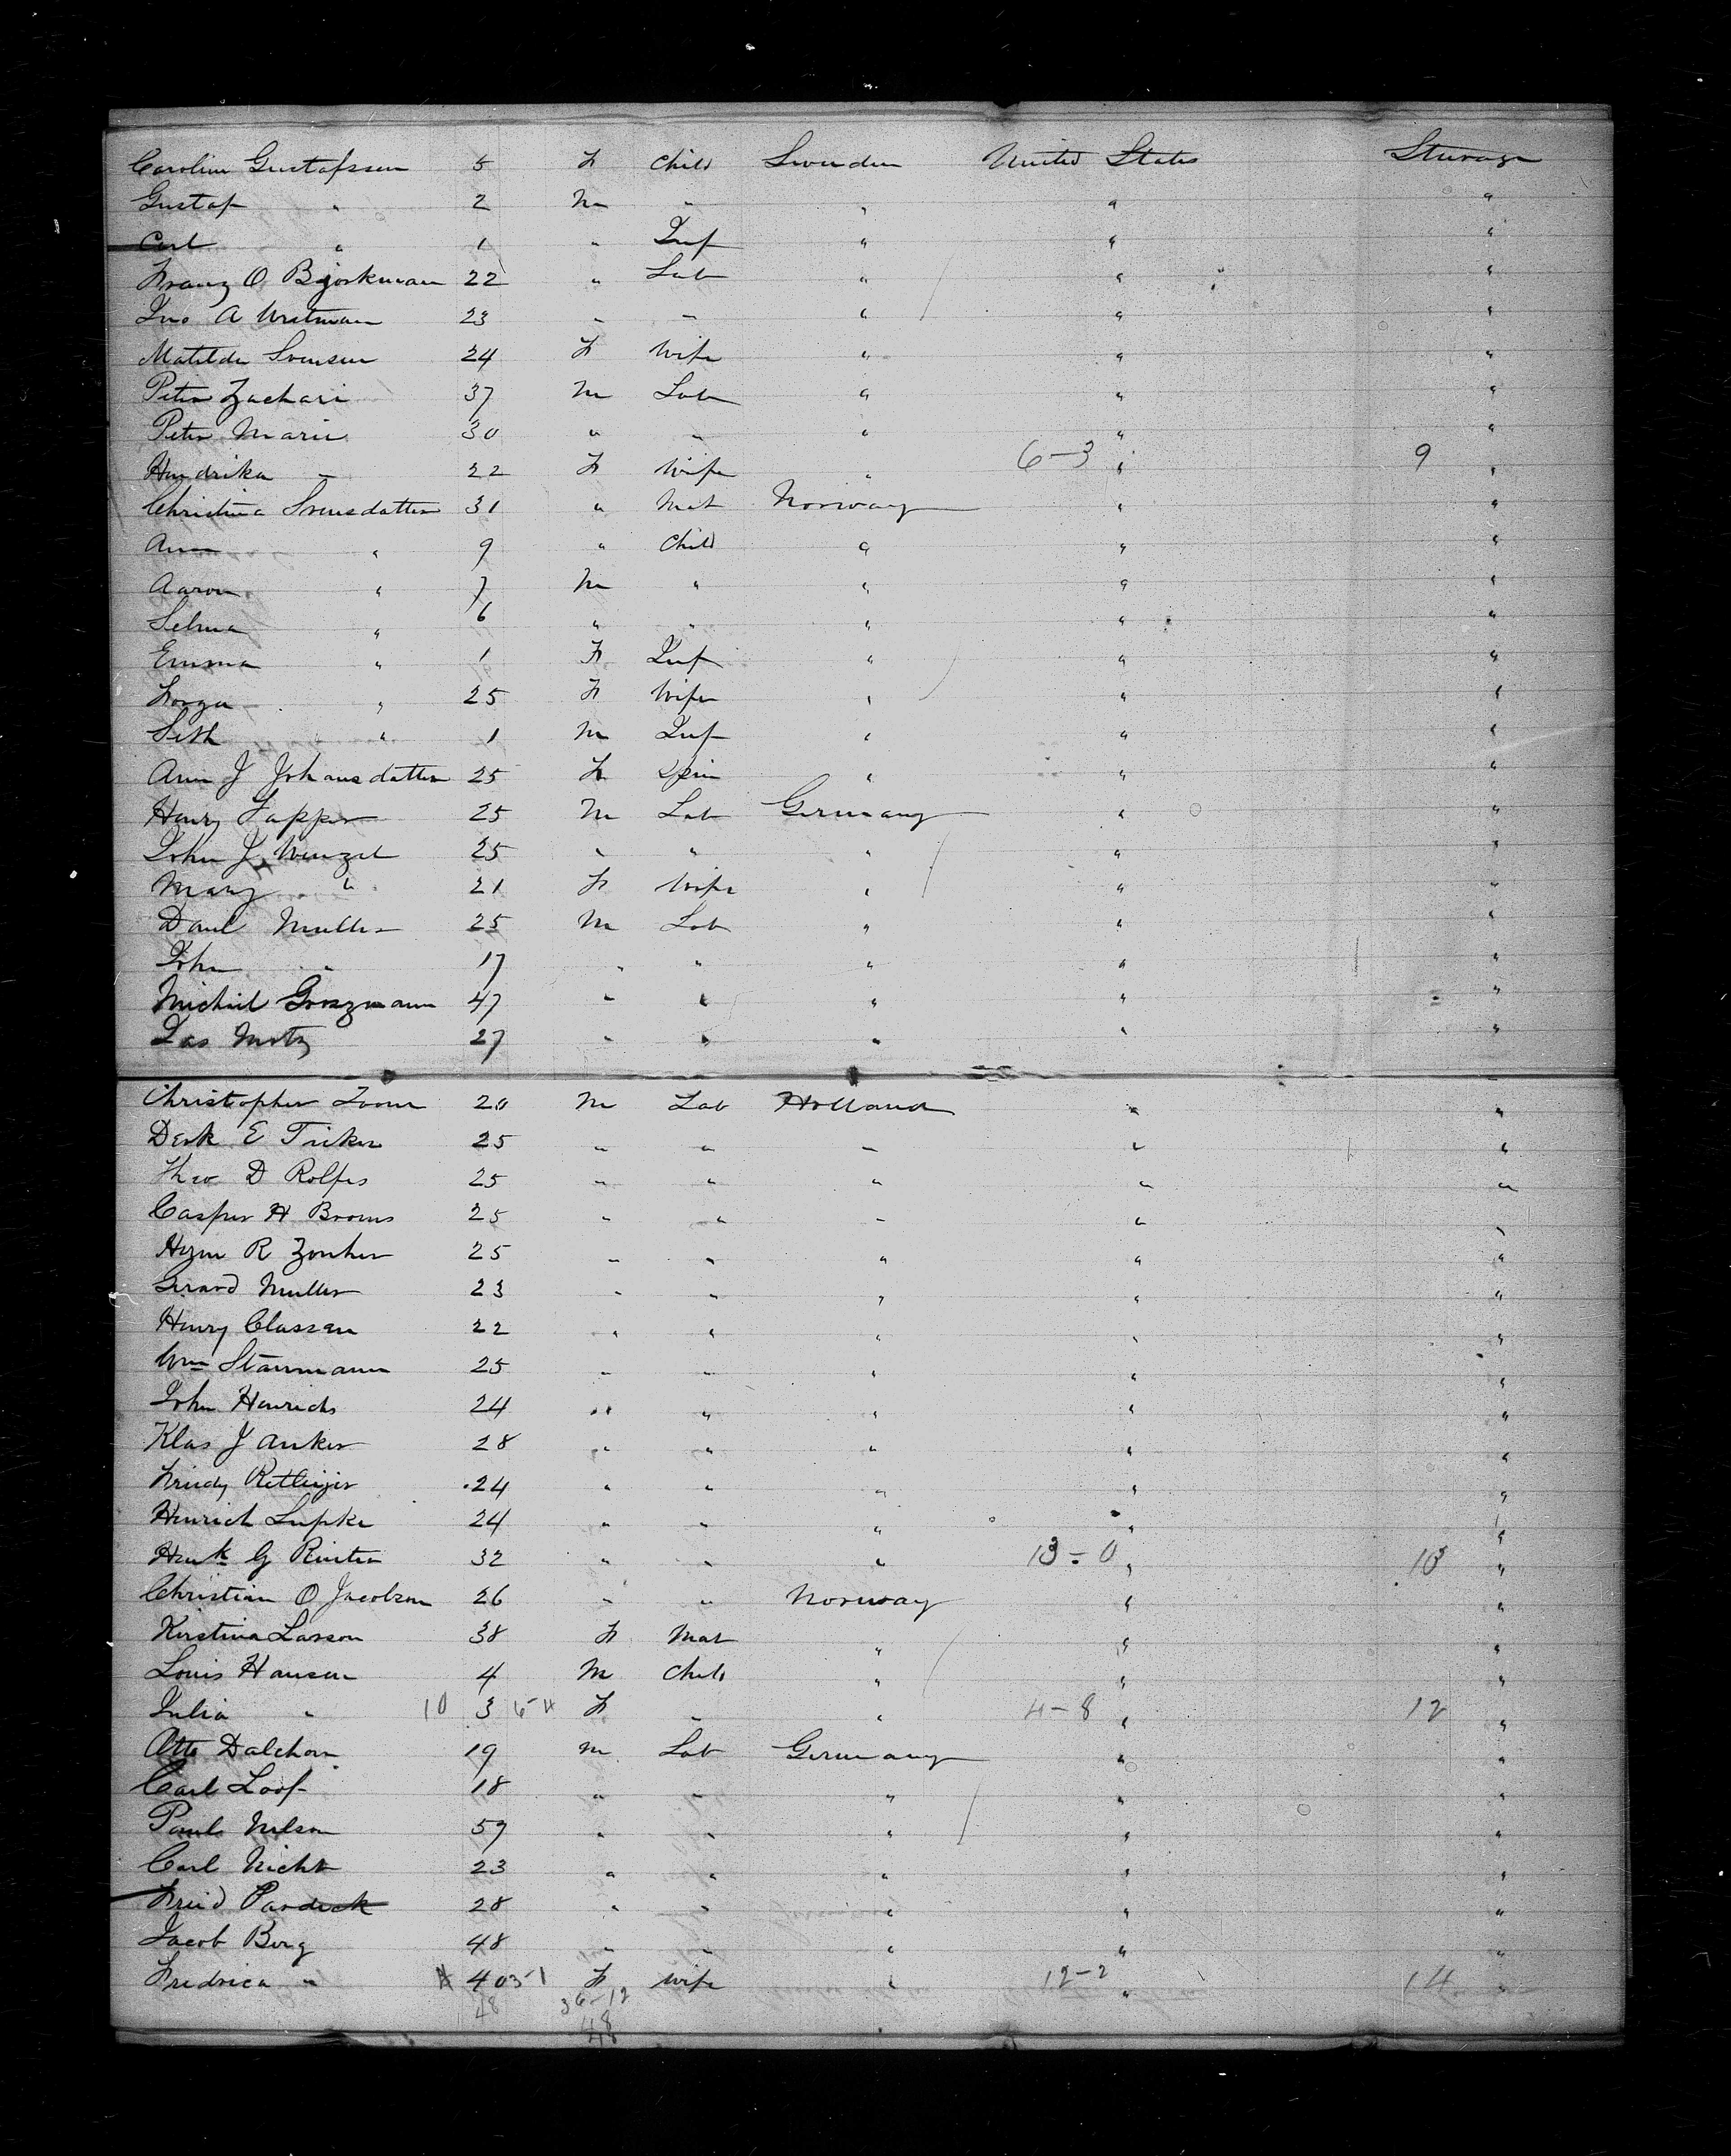 Carolina Gustafsson 5 F Child Sweeden United States Steerage
Gustaf " 2 M " " " "
Carl " 1 " Inf " " "
Franz O Bjorkman 22 " Lab " " "
Jno A Wretman 23 " " " " "
Matilda Svensen 24 F Wife " " "
Peter Zachari 37 M Lab " " "
Peter Marie 30 " " " " "
Hendrika " 22 F Wife " 6-3 " 9 "
Christina Svensdatter 31 " Mat Norway " "
Ann " 9 " Child " " "
Aaron " 7 M " " " "
Selma " 6 " " " " "
Emma " 1 F Inf " " "
" 25 F Wife " " "
Seth " 1 M Inf " " "
Ann J Johansdatter 25 F Spin " " "
Henry Tapper 25 M Lab Germany " "
John J Wenzel 25 " " " " "
Mary " 21 F Wife " " "
Danl Muller 25 M Lab " " "
John " 17 " " " " "
Michael Groszmann 47 " " " " "
Jas Motz 27 " " " " "
Christopher 20 M Lab Holland " "
Derk E 25 " " " " "
Theo D Rolfes 25 " " " " "
Casper H Broms 25 " " " " "
R Zonker 25 " " " " "
Gerard Muller 23 " " " " "
Henry Classen 22 " " " " "
Wm Starmann 25 " " " " "
John Henrichs 24 " " " " "
Klas J Anker 28 " " " " "
24 " " " " "
Henrich Lupke 24 " " " " "
Henk G Rinten 32 " " " 13-0 " 13 "
Christian O Jacobson 26 " " Norway " "
Kirstina Larson 38 F Mat " " "
Louis Hansen 4 M Child " " "
Julia " 10 3 F " " 4-8 " 12 "
Otto Dalchow 19 M Lab Germany " "
Carl Loof 18 " " " " "
Paul Nelson 57 " " " " "
Carl Nicht 23 " " " " "
Fried Pardeck 28 " " " " "
Jacob Berg 48 " " " " "
Fredrica " 40 3-1 F Wife " 12-2 " 14 "
48 36-12
48